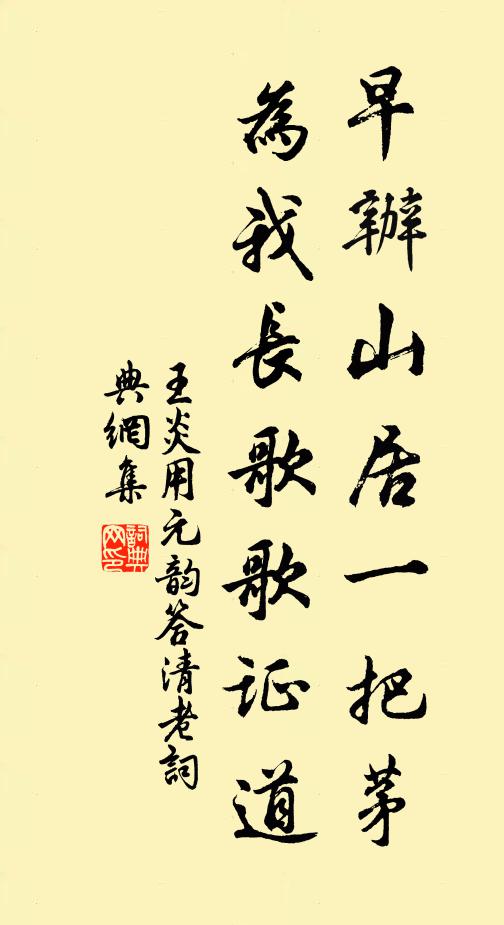 早辦山居一把茅
為我長歌歌证道
王炎用元韵答清老詞
典網集
詞典
网印